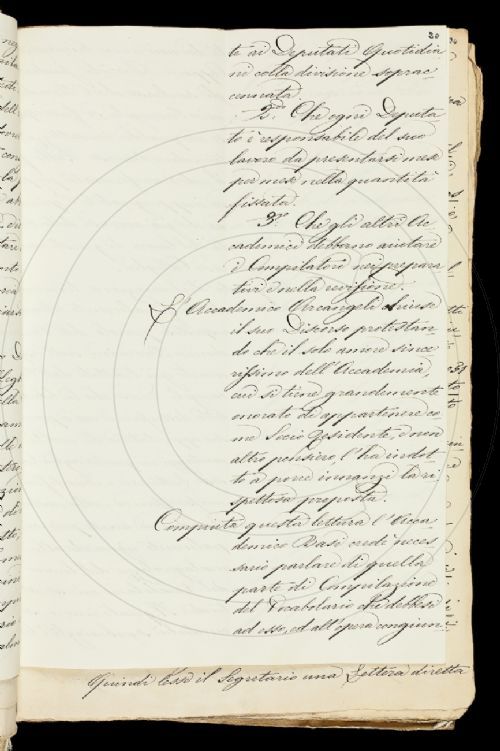 20
te ai Deputati Quotidia
ni colla divisione soprac
cennata.
2do. Che ogni Deputa
to è responsabile del suo
lavoro da presentarsi mese
per mese nella quantità
fissata.
3o. Che gli altri Ac
cademici debbano aiutare
i Compilatori nei prepara
tivi e nella revisione.
L'Accademico Arcangeli chiuse
il suo Discorso protestan
do che il solo amore since
rissimo dell'Accademia,
cui si tiene grandemente
onorato di appartenere co
me Socio Residente, e non
altro pensiero l'ha indot
to a porre innanzi la ri
spettosa proposta.
Compiuta questa lettura l'Acca
demico Basi credè neces
sario parlare di quella
parte di Compilazione
del Vocabolario che debbesi
ad esso, ed all'opera congiun
Quindi lesse il Segretario una Lettera diretta